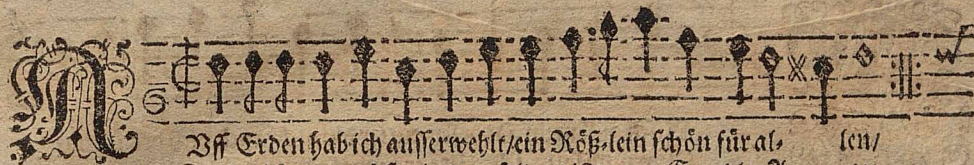 AVff Erden hab ich ausserwehlt/ein Röß-lein schön für al- len/